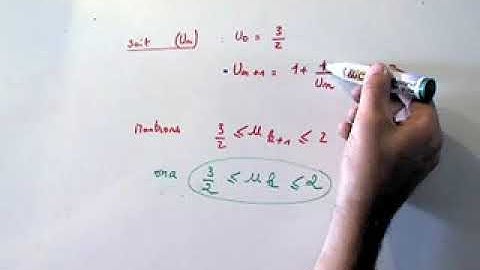 soit (Un) : U0 = 3/2
• Un+1 = 1 + 1/Un
Montrons 3/2 ≤ Uk+1 ≤ 2
ona 3/2 ≤ Uk ≤ 2